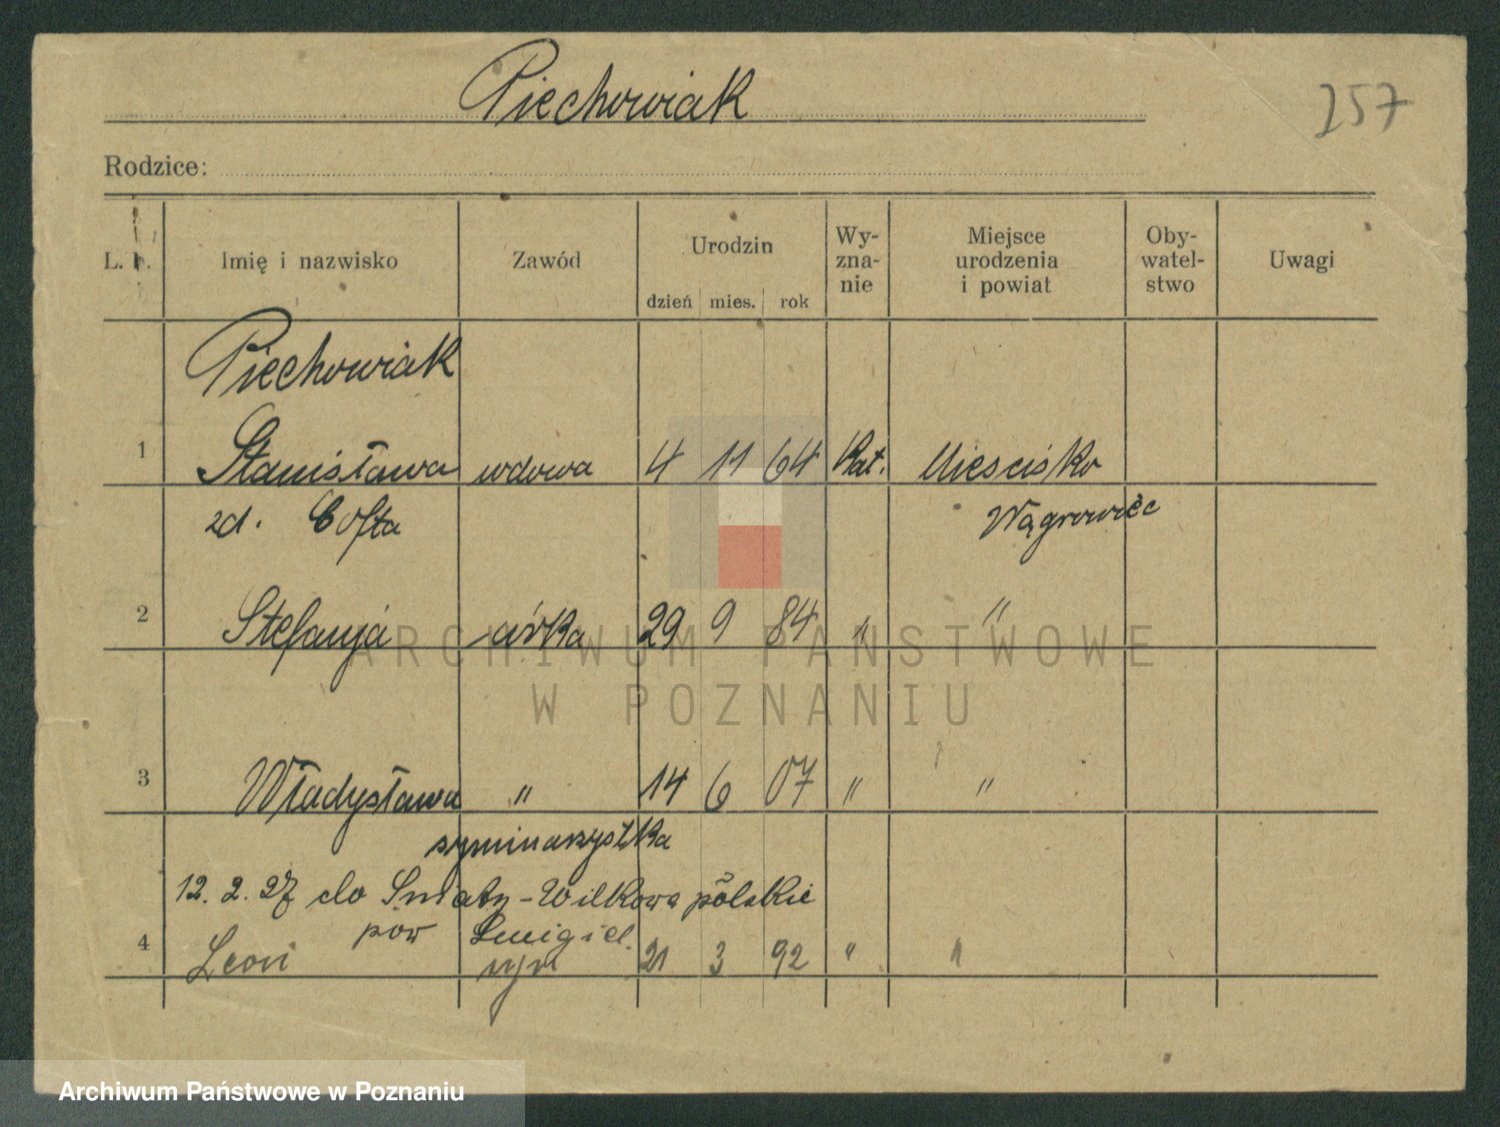 Piechowiak
257
Rodzice:
L. p. Imię i nazwisko Zawód Urodzin dzień mies. rok Wy-zna-nie Miejsce urodzenia i powiat Oby-watel-stwo Uwagi
Piechowiak
1 Stanisława wdowa 4 11 64 Kat. Mieścisko
zd. Cofta Wągrowiec
2 Stefanja córka 29 9 84 " "
3 Władysława " 14 6 07 " "
syminarzystka
12. 2. 27 do Śniaty-Wilkowo polskie
pow Śmigiel.
4 Leon syn 21 3 92 " "
ARCHIWUM PAŃSTWOWE
W POZNANIU
Archiwum Państwowe w Poznaniu